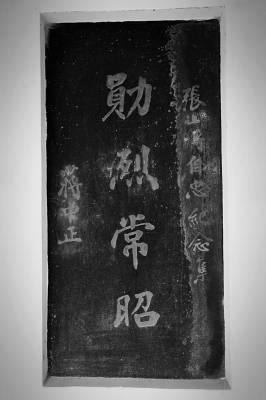 張上將自忠紀念集
勛烈常昭
蔣中正